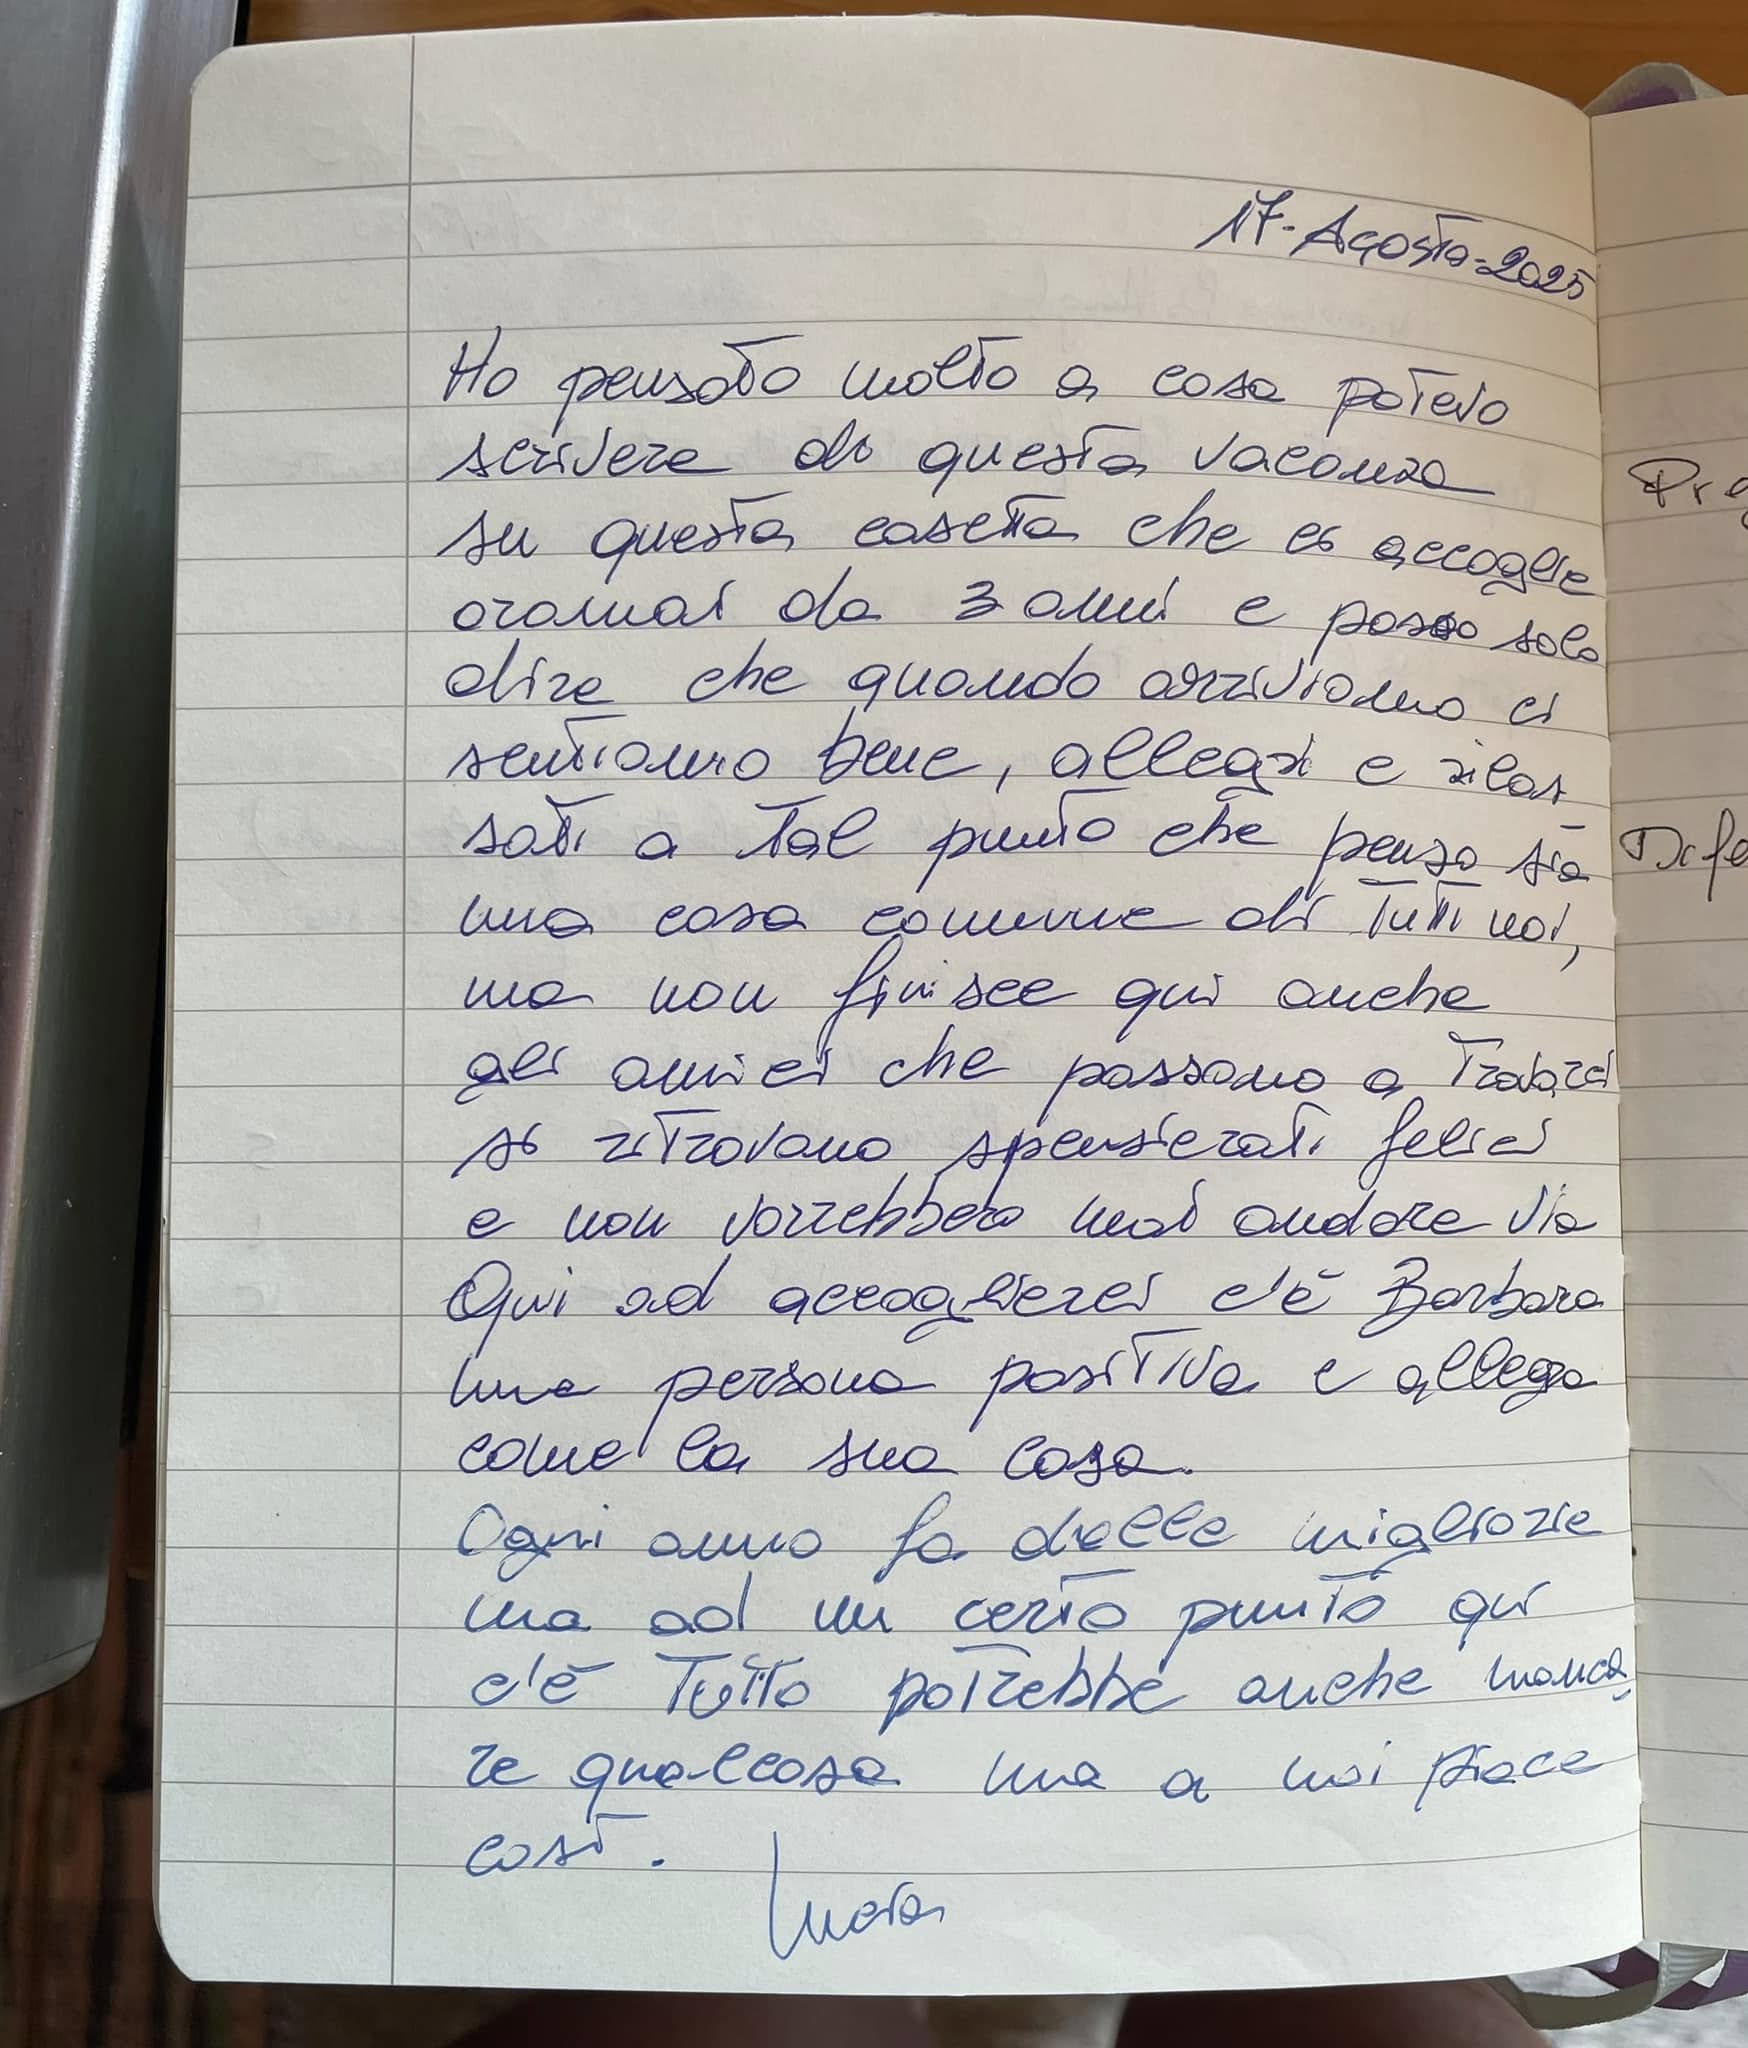 17-Agosto-2025
Ho pensato molto a cosa potevo
scrivere di questa vacanza
su questa casetta che ci accoglie
oramai da 3 anni e posso solo
dire che quando arriviamo ci
sentiamo bene, allegri e rilas
sati a tal punto che penso sia
una cosa comune di tutti noi,
ma non finisce qui anche
gli amici che passano a trovarci
si ritrovano spensierati felici
e non vorrebbero mai andare via
Qui ad accoglierci c'è Barbara
una persona positiva e allegra
come la sua casa.
Ogni anno fa delle migliorie
ma ad un certo punto qui
c'è tutto potrebbe anche manca-
re qualcosa ma a noi piace
così.